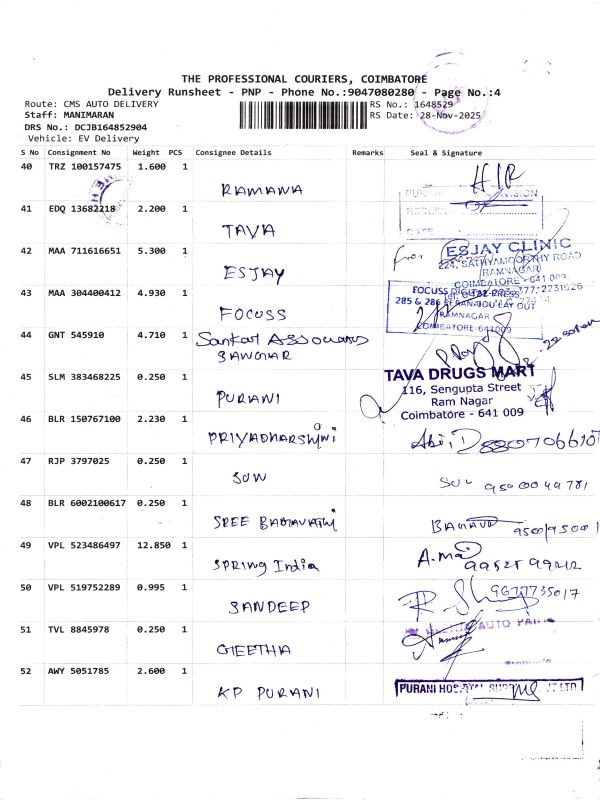 THE PROFESSIONAL COURIERS, COIMBATORE
Delivery Runsheet - PNP - Phone No.:9047080280 - Page No.:4
Route: CMS AUTO DELIVERY
RS No.: 1648529
Staff: MANIMARAN
RS Date: 28-Nov-2025
DRS No.: DCJB164852904
Vehicle: EV Delivery
S No Consignment No Weight PCS Consignee Details Remarks Seal & Signature
40 TRZ 100157475 1.600 1
RAMANA
41 EDQ 13682218 2.200 1
TAVA
ESJAY CLINIC
42 MAA 711616651 5.300 1
224, SATHYAMOORTHY ROAD
RAMNAGAR
ESJAY
COIMBATORE - 641 009
43 MAA 304400412 4.930 1
FOCUSS DIGITAL PRESS
RAMNAGAR
FOCUSS
COIMBATORE-641009
44 GNT 545910 4.710 1
Sankar
45 SLM 383468225 0.250 1
TAVA DRUGS MART
116, Sengupta Street
Ram Nagar
PURANI
Coimbatore - 641 009
46 BLR 150767100 2.230 1
PRIYADHARSHINI
47 RJP 3797025 0.250 1
SUN
48 BLR 6002100617 0.250 1
SREE
49 VPL 523486497 12.850 1
SPRING India
50 VPL 519752289 0.995 1
SANDEEP
9677735017
51 TVL 8845978 0.250 1
AUTO PARTS
GEETHA
52 AWY 5051785 2.600 1
KP PURANI
PURANI HOSPITAL